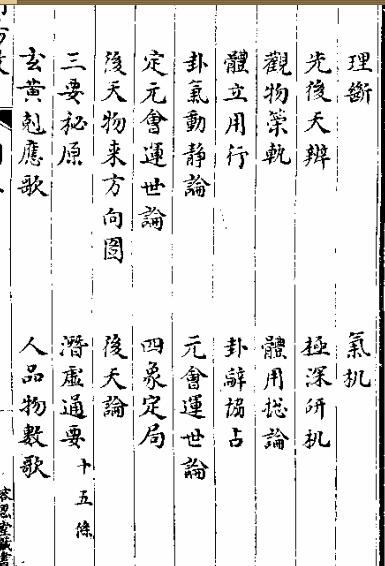 理斷 氣机
先後天辨 極深研机
觀物榮軌 體用揔論
體立用行 卦辭協占
卦氣動靜論 元會運世論
定元會運世論 四象定局
後天物来方向圖 後天論
三要秘原 潛虛通要十五條
玄黃剋應歌 人品物數歌